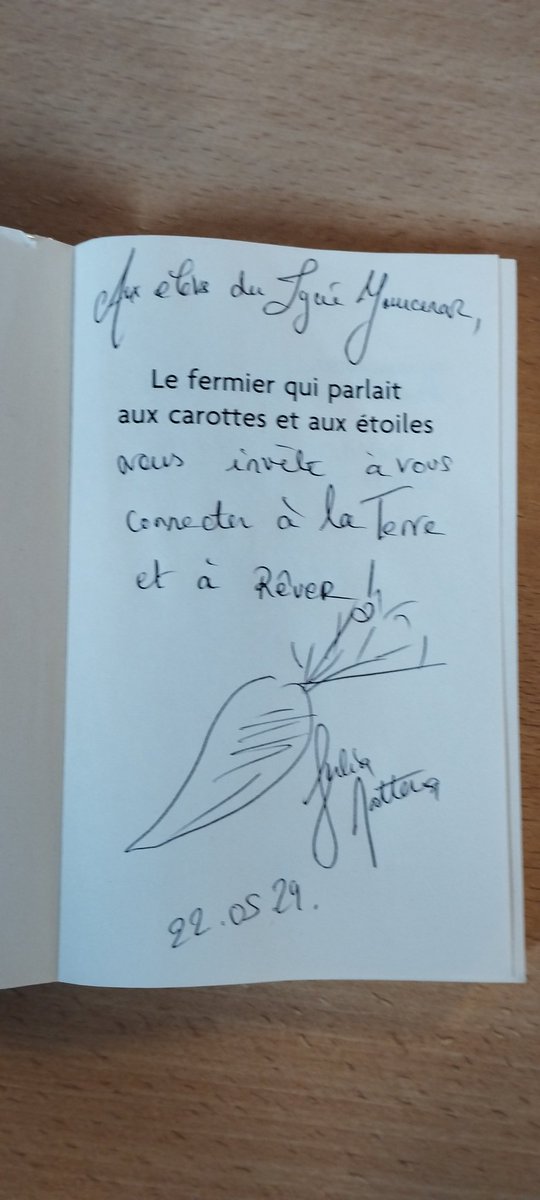 Aux élèves du Lycée Yourcenar,
Le fermier qui parlait
aux carottes et aux étoiles
vous invite à vous
connecter à la Terre
et à RÊVER !
Julia
Mattera
22.05 24.